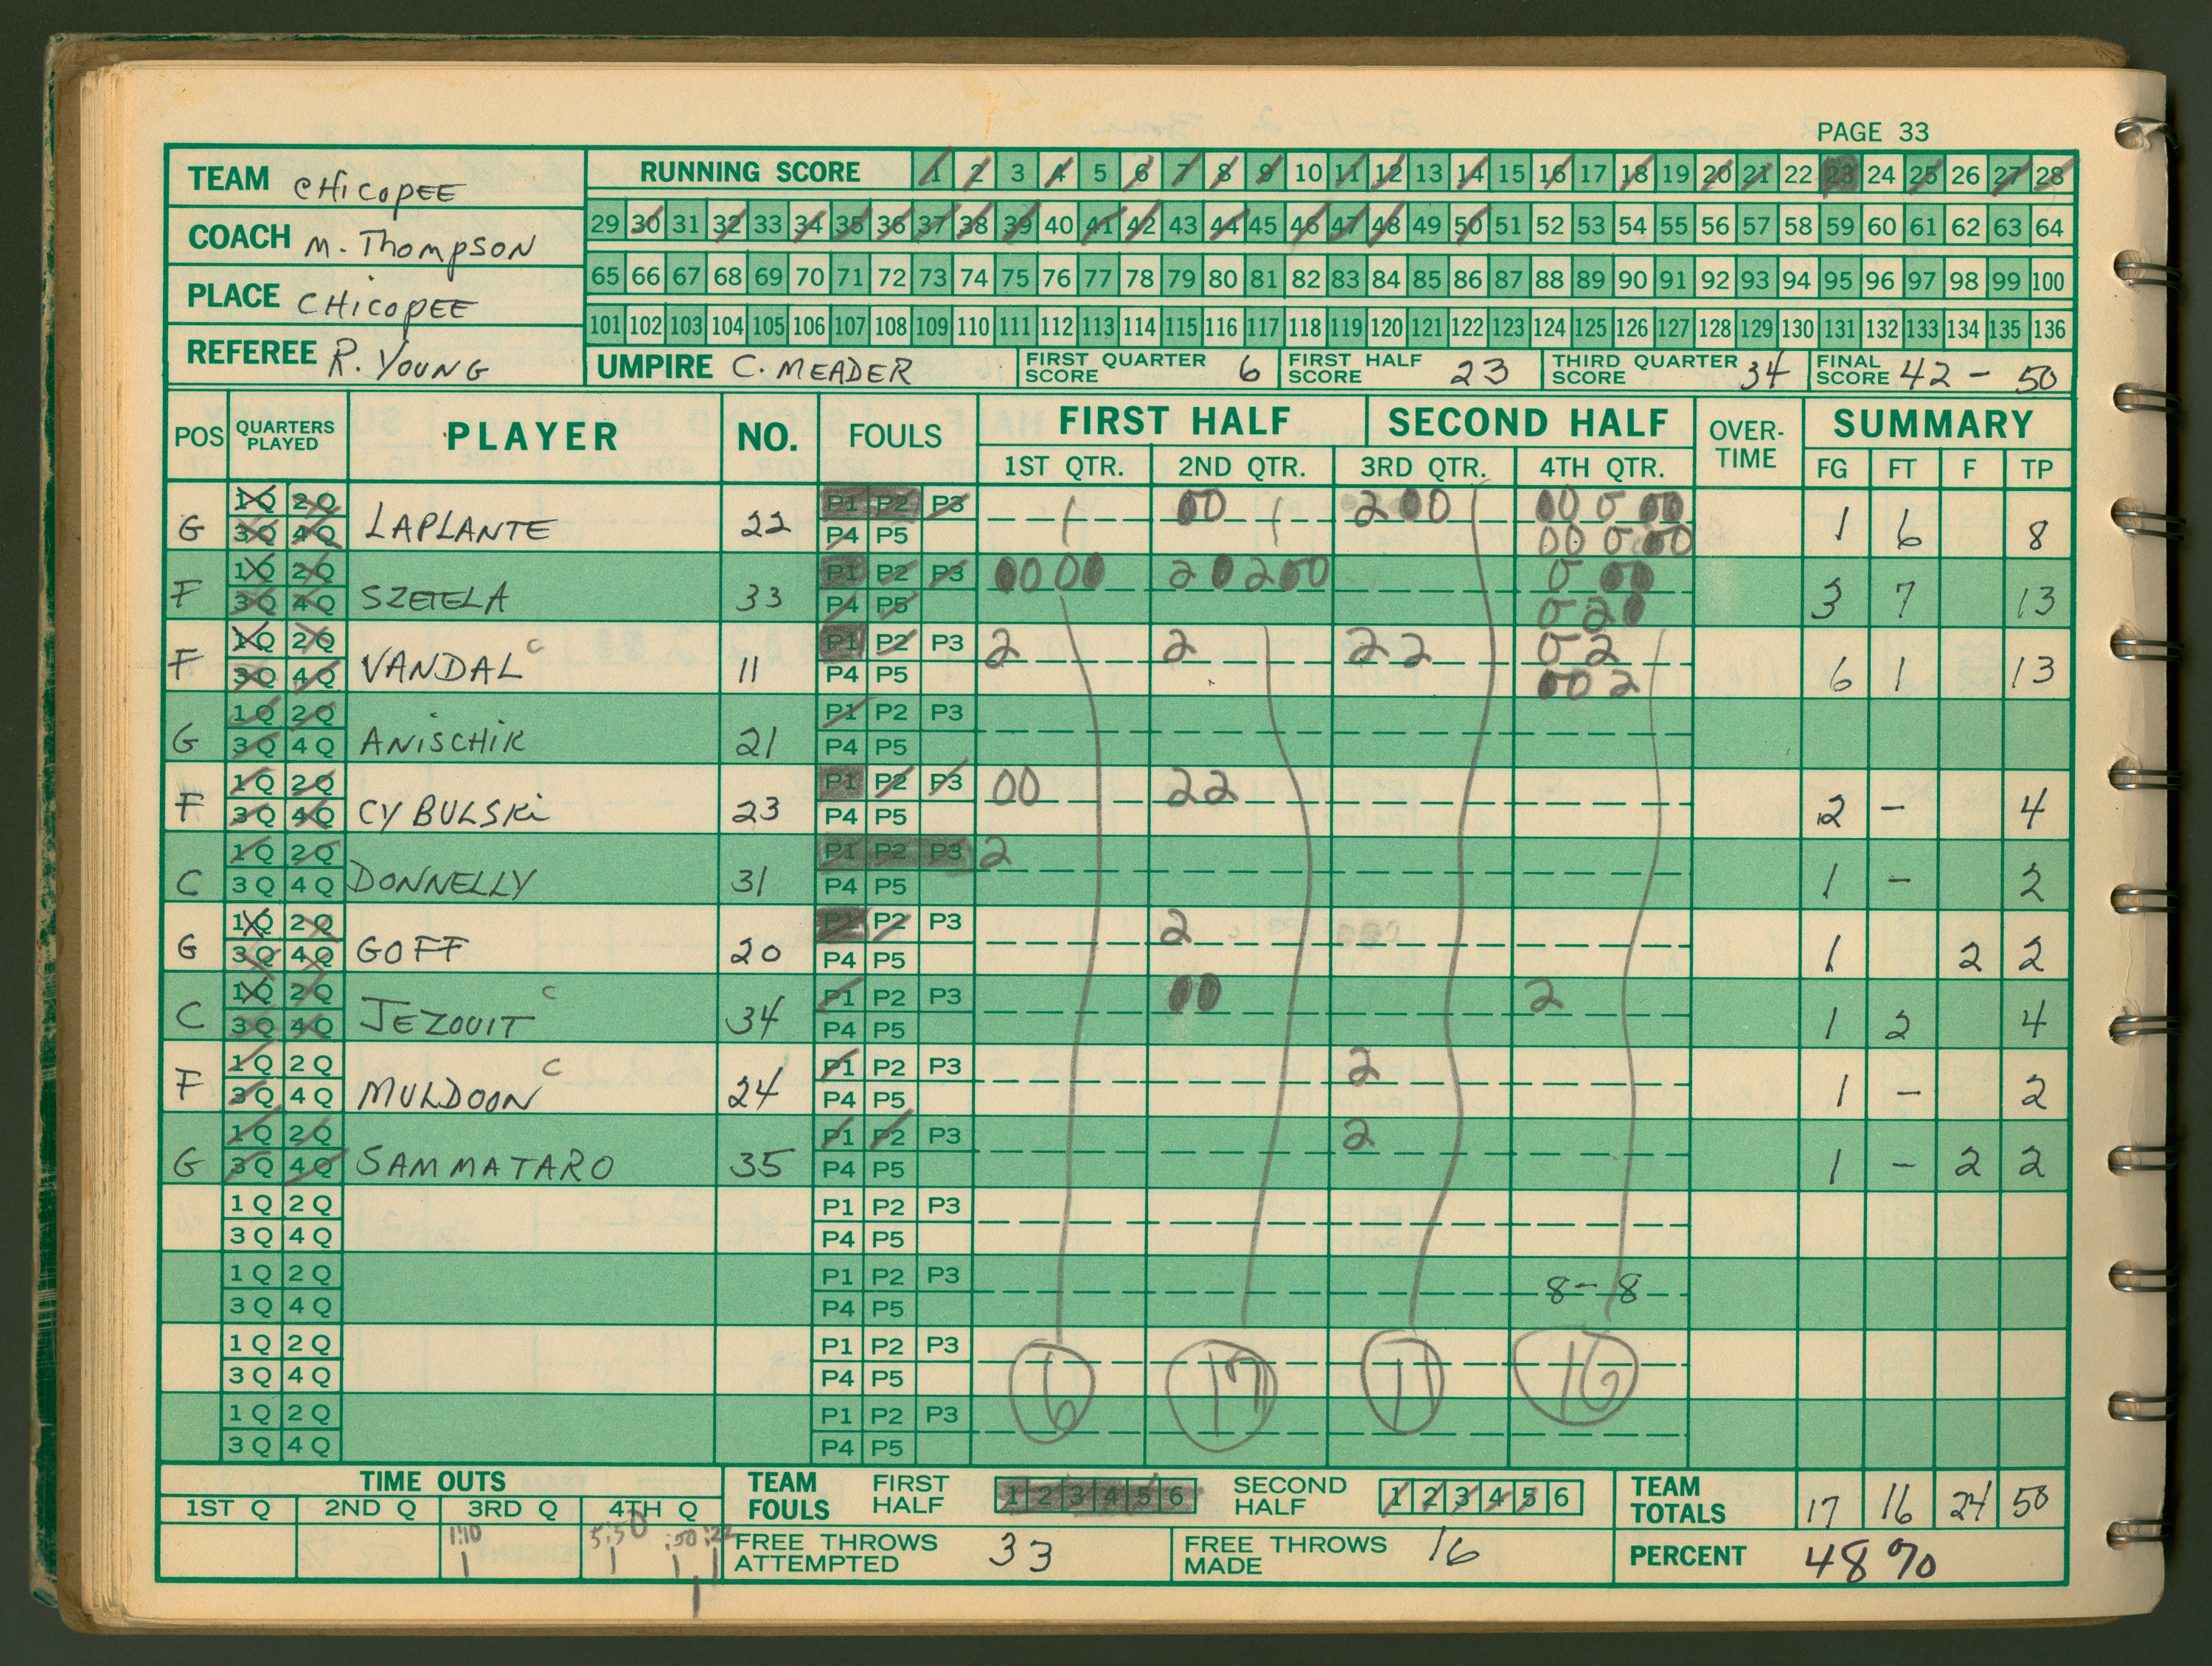 PAGE 33
TEAM CHICOPEE
COACH M. Thompson
PLACE CHICOPEE
REFEREE R. YOUNG
RUNNING SCORE 1 2 3 4 5 6 7 8 9 10 11 12 13 14 15 16 17 18 19 20 21 22 23 24 25 26 27 28
29 30 31 32 33 34 35 36 37 38 39 40 41 42 43 44 45 46 47 48 49 50 51 52 53 54 55 56 57 58 59 60 61 62 63 64
65 66 67 68 69 70 71 72 73 74 75 76 77 78 79 80 81 82 83 84 85 86 87 88 89 90 91 92 93 94 95 96 97 98 99 100
101 102 103 104 105 106 107 108 109 110 111 112 113 114 115 116 117 118 119 120 121 122 123 124 125 126 127 128 129 130 131 132 133 134 135 136
UMPIRE C. MEADER FIRST QUARTER SCORE 6 FIRST HALF SCORE 23 THIRD QUARTER SCORE 34 FINAL SCORE 42 - 50
POS QUARTERS PLAYED PLAYER NO. FOULS FIRST HALF SECOND HALF OVER-TIME SUMMARY
1ST QTR. 2ND QTR. 3RD QTR. 4TH QTR. FG FT F TP
1Q 2Q P1 P2 P3 00 200 00 0 00
G 3Q 4Q LAPLANTE 22 P4 P5 00 0 00 1 6 8
1Q 2Q P1 P2 P3 00 00 20200 0 00
F 3Q 4Q SZETELA 33 P4 P5 0 20 3 7 13
1Q 2Q P1 P2 P3 2 2 22 0 2
F 3Q 4Q VANDAL C 11 P4 P5 00 2 6 1 13
1Q 2Q P1 P2 P3
G 3Q 4Q ANISCHIK 21 P4 P5
1Q 2Q P1 P2 P3 00 22
F 3Q 4Q CYBULSKi 23 P4 P5 2 - 4
1Q 2Q P1 P2 P3 2
C 3Q 4Q DONNELLY 31 P4 P5 1 - 2
1Q 2Q P1 P2 P3 2
G 3Q 4Q GOFF 20 P4 P5 1 2 2
1Q 2Q P1 P2 P3 00 2
C 3Q 4Q JEZOUIT C 34 P4 P5 1 2 4
1Q 2Q P1 P2 P3 2
F 3Q 4Q MULDOON C 24 P4 P5 1 - 2
1Q 2Q P1 P2 P3 2
G 3Q 4Q SAMMATARO 35 P4 P5 1 - 2 2
1Q 2Q P1 P2 P3
3Q 4Q P4 P5
1Q 2Q P1 P2 P3 8 - 8
3Q 4Q P4 P5
1Q 2Q P1 P2 P3
3Q 4Q P4 P5 6 17 11 16
1Q 2Q P1 P2 P3
3Q 4Q P4 P5
TIME OUTS TEAM FOULS FIRST HALF 1 2 3 4 5 6 SECOND HALF 1 2 3 4 5 6 TEAM TOTALS 17 16 24 50
1ST Q 2ND Q 3RD Q 4TH Q
1:10 5:50 :50 :22 FREE THROWS ATTEMPTED 33 FREE THROWS MADE 16 PERCENT 48%